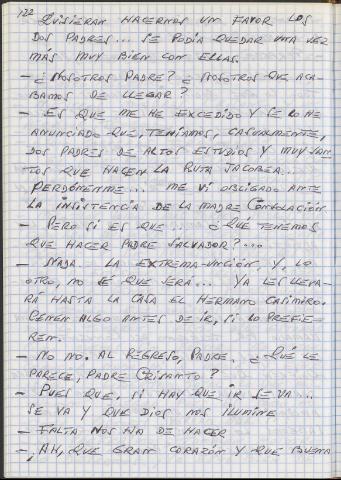 122
QUISIERAN HACERNOS UN FAVOR LOS
DOS PADRES... SE PODÍA QUEDAR UNA VEZ
MÁS MUY BIEN CON ELLAS.
- ¿NOSOTROS PADRE? ¿NOSOTROS QUE ACA-
BAMOS DE LLEGAR?
- ES QUE ME HE EXCEDIDO Y SE LO HE
ANUNCIADO QUE, TENÍAMOS, CASUALMENTE,
DOS PADRES DE ALTOS ESTUDIOS Y MUY SAN-
TOS QUE HACEN LA RUTA JACOBEA...
PERDÓNENME... ME VI OBLIGADO ANTE
LA INSISTENCIA DE LA MADRE CONSOLACIÓN
- PERO SI ES QUE... ¿QUÉ TENEMOS
QUE HACER PADRE SALVADOR?...
- NADA. LA EXTREMA-UNCIÓN, Y, LO
OTRO, NO SÉ QUE SERÁ... YA LES LLEVA-
RÁ HASTA LA CASA EL HERMANO CASIMIRO.
CENEN ALGO ANTES DE IR, SI LO PREFIE-
REN.
- NO NO. AL REGRESO, PADRE. ¿QUÉ LE
PARECE, PADRE CRISANTO?
- PUES QUE, SI HAY QUE IR SE VA...
SE VA Y QUE DIOS NOS ILUMINE
- FALTA NOS HA DE HACER
- ¡AH, QUE GRAN CORAZÓN Y QUE BUENA